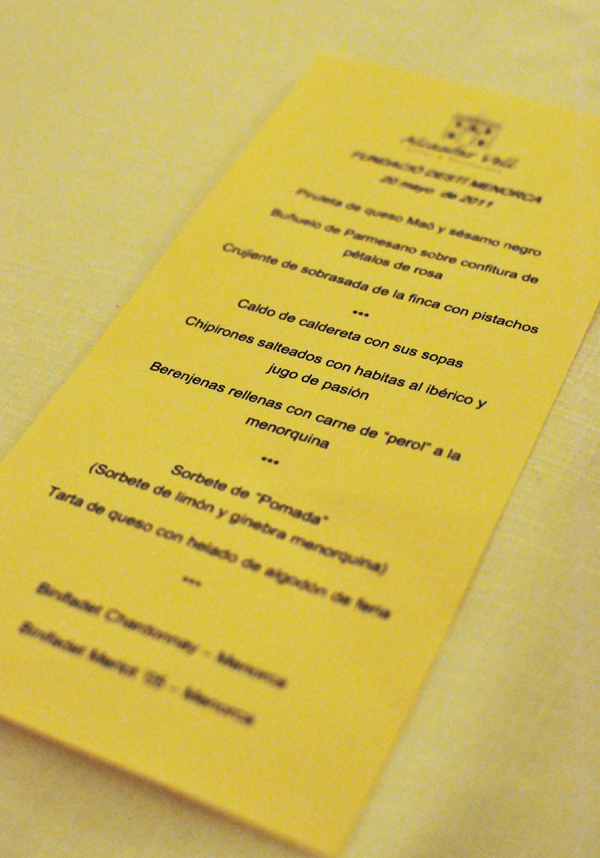 FUNDACIÓ DESTÍ MENORCA
20 mayo de 2011
Piruleta de queso Maó y sésamo negro
Buñuelo de Parmesano sobre confitura de
pétalos de rosa
Crujiente de sobrasada de la finca con pistachos
***
Caldo de caldereta con sus sopas
Chipirones salteados con habitas al ibérico y
jugo de pasión
Berenjenas rellenas con carne de “perol” a la
menorquina
***
Sorbete de “Pomada”
(Sorbete de limón y ginebra menorquina)
Tarta de queso con helado de algodón de feria
***
Binifadet Chardonnay – Menorca
Binifadet Merlot – Menorca